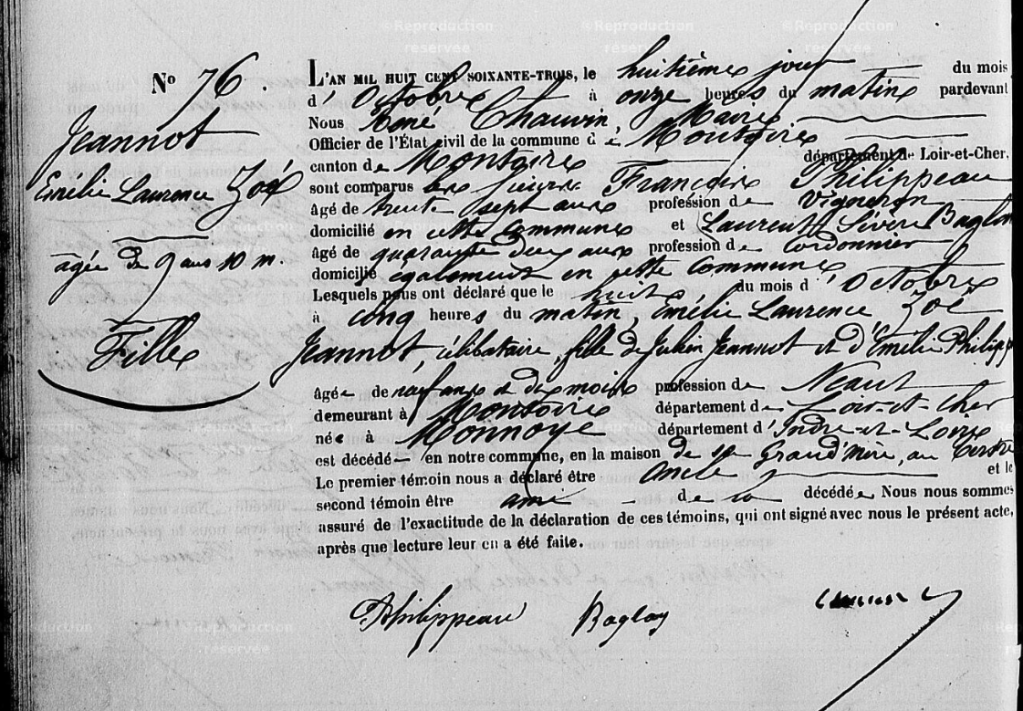 ©Reproduction réservée
N° 76.
Jeannot
Emélie Laurence Zoé
agée de 9 ans 10 m.
Fille
L'AN MIL HUIT CENT SOIXANTE-TROIS, le huitième jour du mois
d'Octobre à onze heures du matin pardevant
Nous René Chauvin, Maire
Officier de l'État civil de la commune de Montoire
canton de Montoire département de Loir-et-Cher,
sont comparus les sieurs François Philippeau
âgé de trente-sept ans profession de Vigneron
domicilié en cette commune et Laurent Sévère Baglan
âgé de quarante deux ans profession de Cordonnier
domicilié également en cette commune
Lesquels nous ont déclaré que le huit du mois d'Octobre
à cinq heures du matin, Emélie Laurence Zoé
Jeannot, célibataire, fille de Julien Jeannot et d'Emélie Philipp
âgée de neuf ans et dix mois profession de Néant
demeurant à Montoire département de Loir-et-Cher
née à Monnoye département d'Indre-et-Loire
est décédée en notre commune, en la maison de sa Grand'mère, au Tertre
Le premier témoin nous a déclaré être oncle et le
second témoin être ami de la décédée Nous nous sommes
assuré de l'exactitude de la déclaration de ces témoins, qui ont signé avec nous le présent acte,
après que lecture leur en a été faite.
Philippeau Baglan